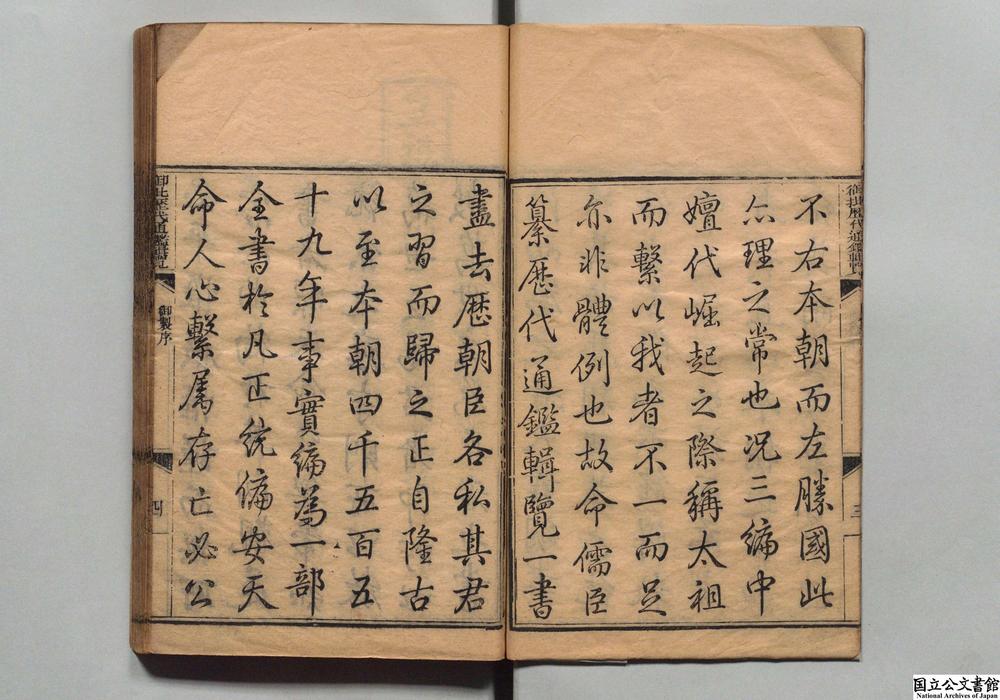 御批歷代通鑑輯覽
三
不右本朝而左勝國此
亦理之常也况三編中
嬗代崛起之際稱太祖
而繫以我者不一而足
亦非體例也故命儒臣
纂歷代通鑑輯覽一書
盡去歷朝臣各私其君
之習而歸之正自隆古
以至本朝四千五百五
十九年事實編為一部
全書於凡正統偏安天
命人心繫屬存亡必公
御批歷代通鑑輯覽
御製序
四
国立公文書館
National Archives of Japan